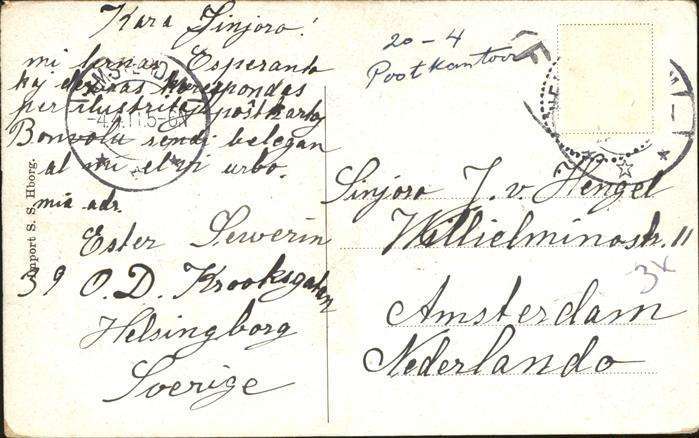 Kara Sinjoro!
mi lernas Esperanto
kaj deziras korespondas
per ilustritaj postkartoj
Bonvolu sendi belegan
al mi el vi urbo.
mia adr.
Ester Sewerin
39 O.D. Krooksgatan
Helsingborg
Sverige
Import S. S. Hborg.
AMSTERDAM
-4.4.11.5-6N
20-4
Postkantoor
Sinjoro J. v. Hengel
Willielminastr. 11
3k
Amsterdam
Nederlando